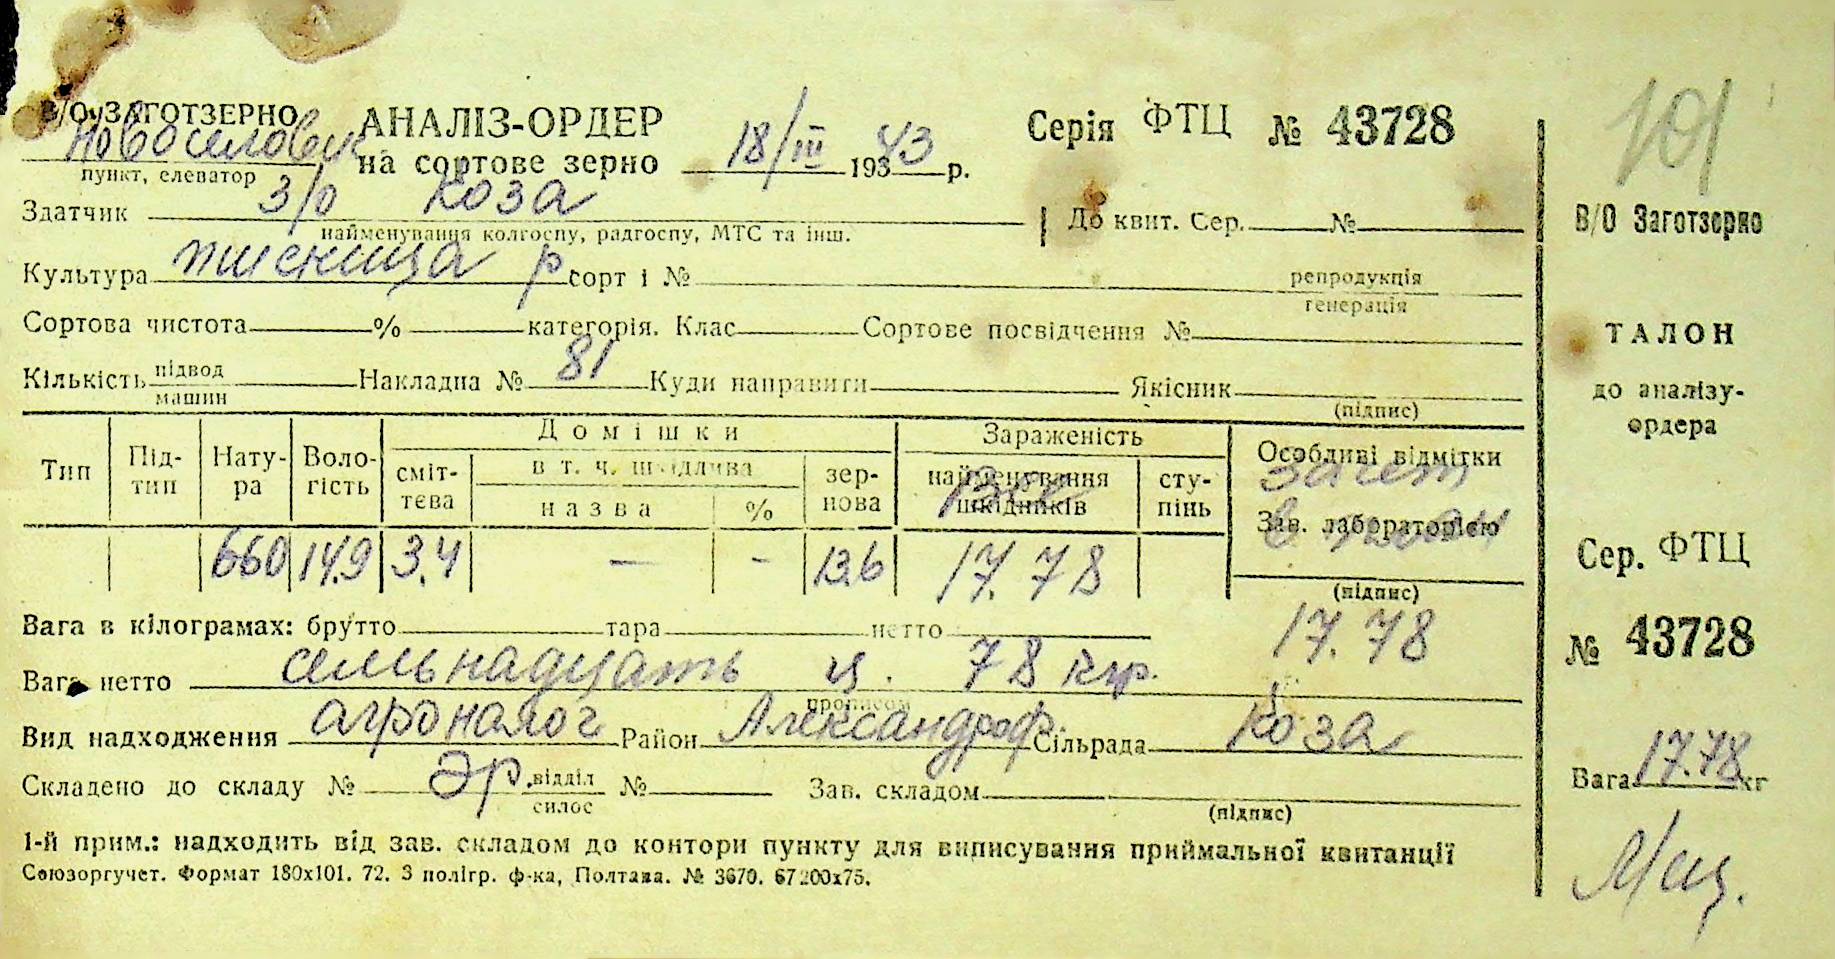 В/О ЗАГОТЗЕРНО
Новоселовск
пункт, елеватор
АНАЛІЗ-ОРДЕР
на сортове зерно 18/III 193 43 р.
Серія ФТЦ № 43728
Здатчик з/о Коза
найменування колгоспу, радгоспу, МТС та інш.
До квит. Сер. №
Культура пшеница р сорт і № репродукція
генерація
Сортова чистота % категорія. Клас Сортове посвідчення №
Кількість підвод
машин
Накладна № 81 Куди направити Якісник
(підпис)
Домішки Зараженість
Тип Під-тип Нату-ра Воло-гість сміт-тєва в т. ч. шкідлива зер-нова найменування шкідників сту-пінь Особливі відмітки
назва %
зачет
Зав. лабораторією
660 14,9 3,4 — - 13,6 17.78
(підпис)
Вага в кілограмах: брутто тара нетто 17.78
Вага нетто семьнадцать ц. 78 кгр.
прописом
Вид надходження агроналог Район Александроф. Сільрада Коза
Складено до складу № эр. відділ
силос
№ Зав. складом
(підпис)
1-й прим.: надходить від зав. складом до контори пункту для виписування приймальної квитанції
Союзоргучет. Формат 180х101. 72. 3 полігр. ф-ка, Полтава. № 3670. 67200х75.
101
В/О Заготзерно
ТАЛОН
до аналізу-
ордера
Сер. ФТЦ
№ 43728
Вага 17.78 кг